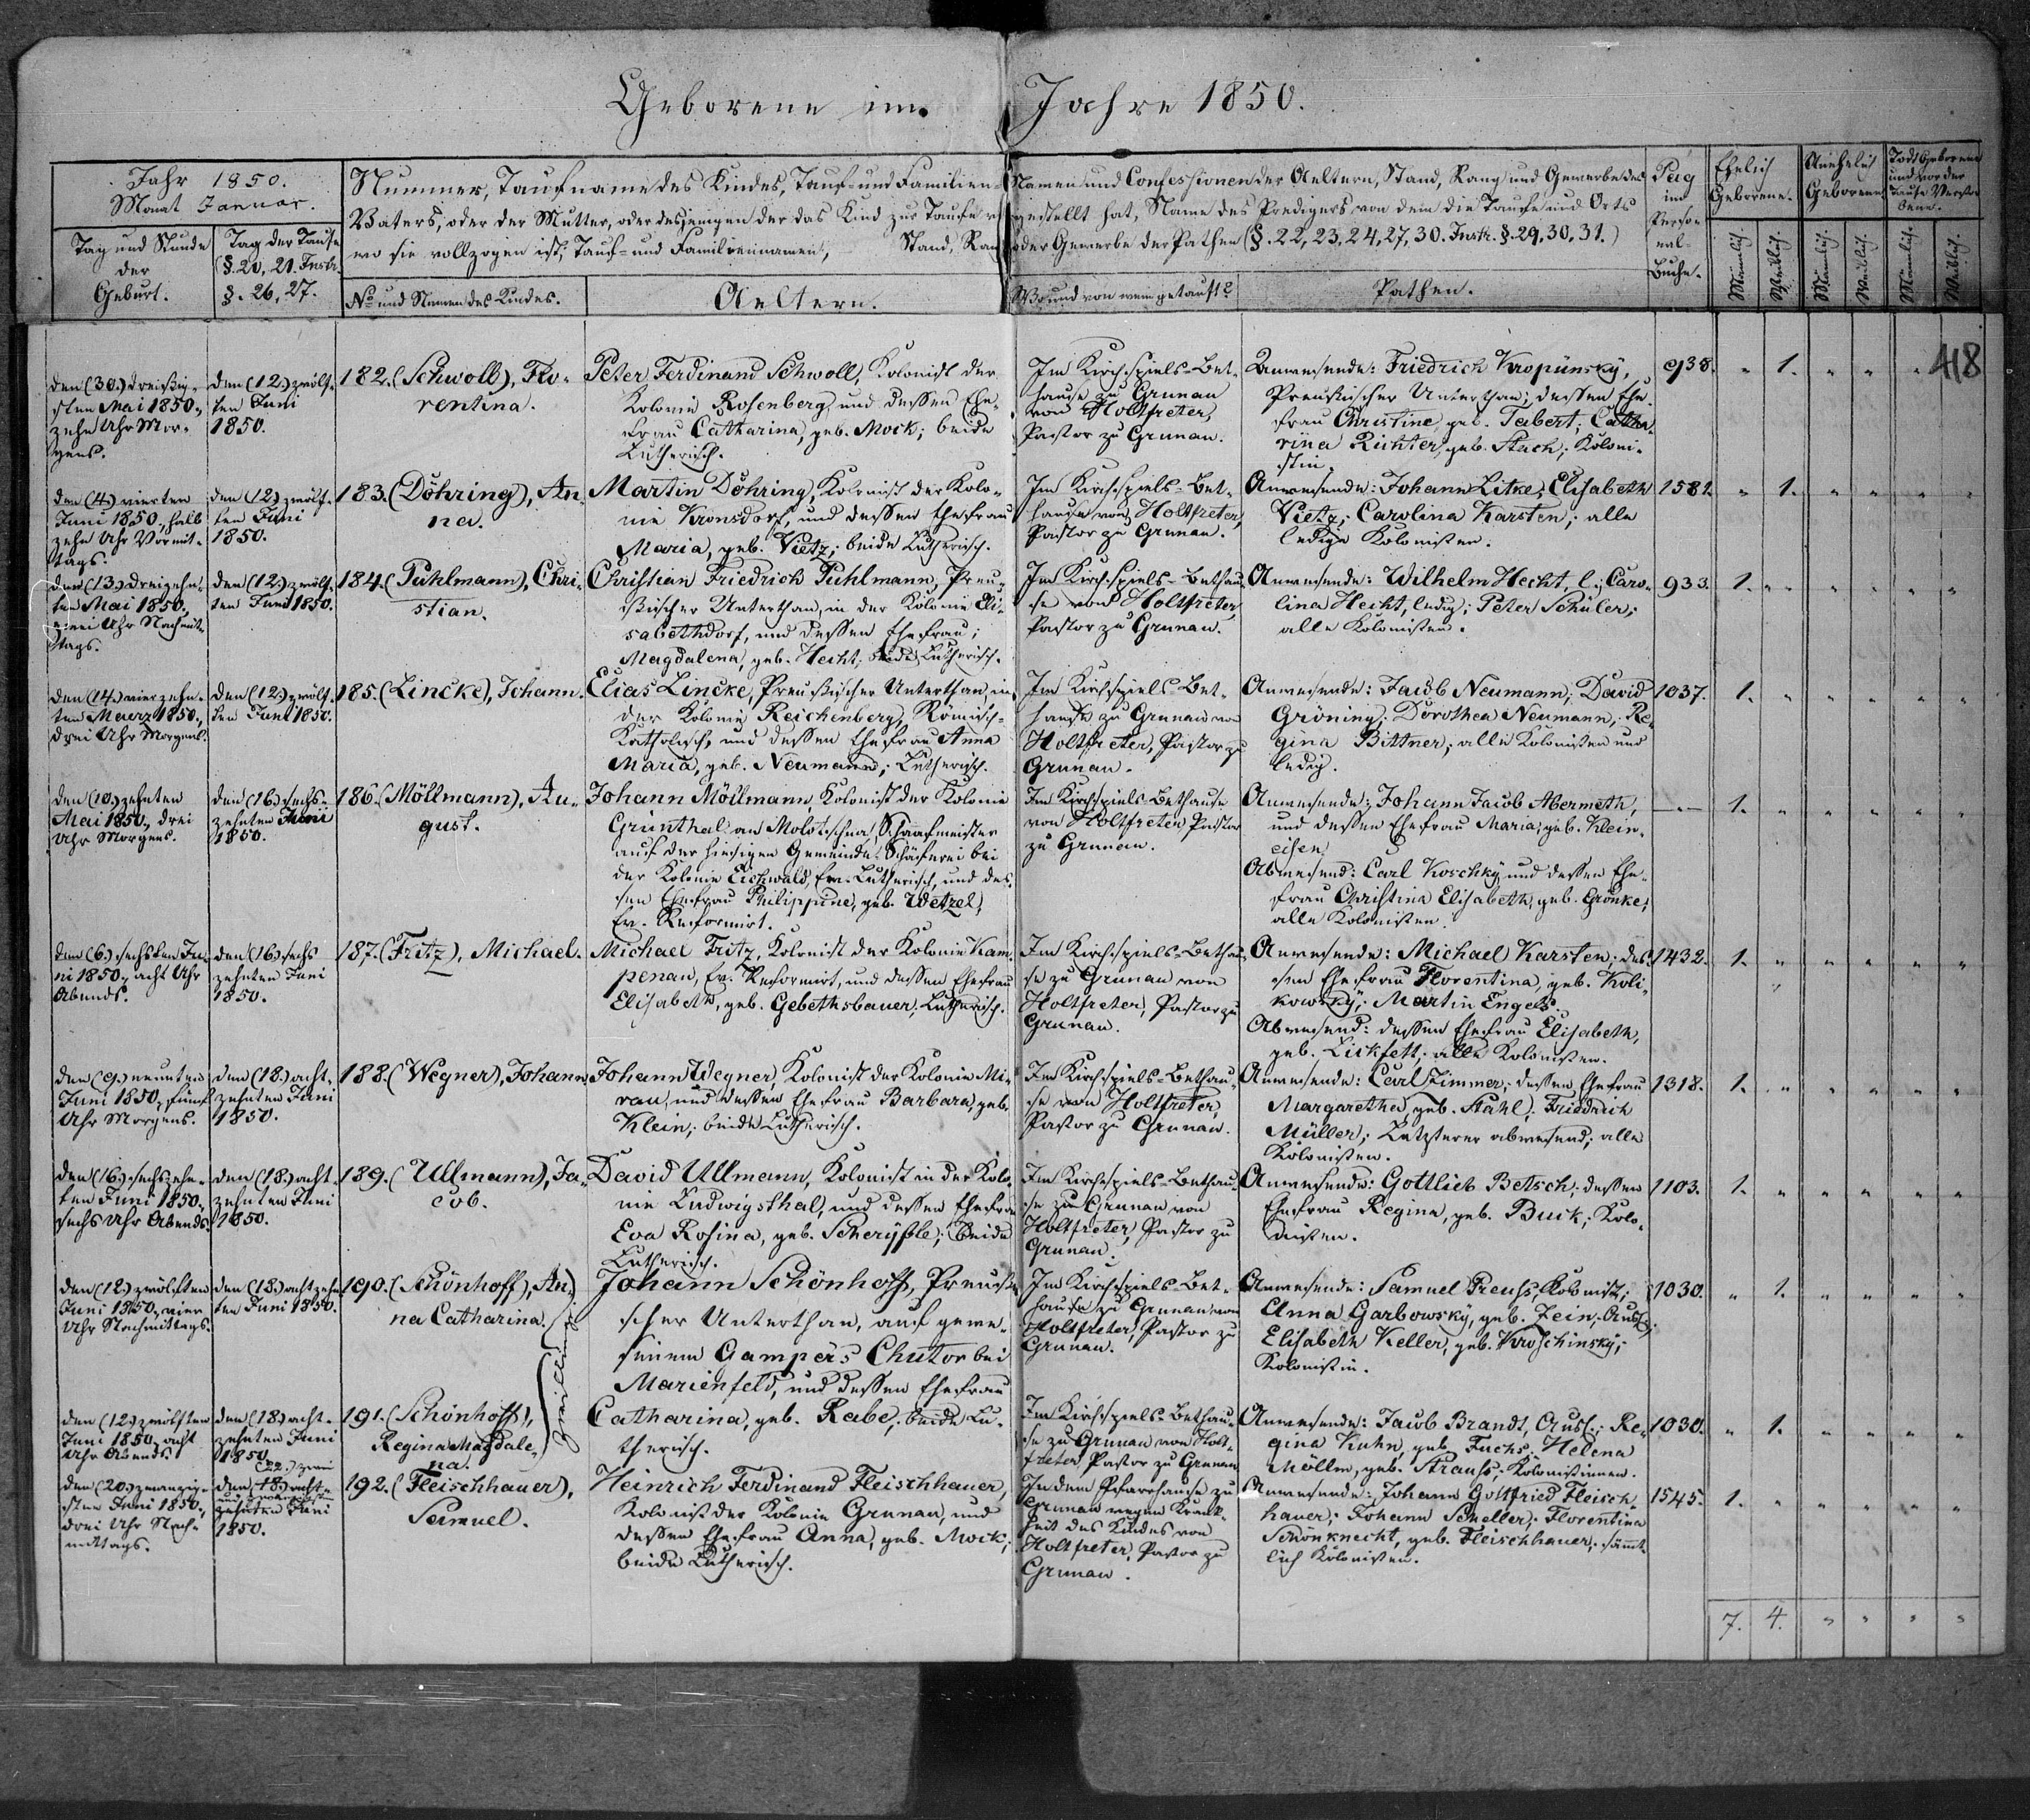 Geborene im Jahre 1850.
Jahr 1850.
Monat Januar.
Tag und Stunde
der
Geburt.
Tag der Taufe
(§. 20, 21. Instr.
§. 26, 27.
Nummer, Taufname des Kindes, Tauf- und Familien-
Vaters, oder der Mutter, oder desjenigen der das Kind zur Taufe
wo sie vollzogen ist, Tauf- und Familiennamen, Stand, Rang
No und Namen des Kindes.
Aeltern.
Namen und Confessionen der Aeltern, Stand, Rang und Gewerbe des
gestellt hat, Name des Predigers von dem die Taufe und Orts
oder Gewerbe der Pathen (§. 22, 23, 24, 27, 30. Instr. §. 29, 30, 31.)
Wo und von wem getauft?
Pathen.
Pag
im
Perso-
nal-
Buche.
Ehelich
Geborene.
Unehelich
Geborene
Todt Geborene
und vor der
Taufe Verstor
bene.
Männlich.
Weiblich.
Männlich.
Weiblich.
Männlich.
Weiblich.
418
den (30.) dreißig-
sten Mai 1850.,
zehn Uhr Mor-
gens.
den (12.) zwölf-
ten Juni
1850.
182. (Schwoll), Flo-
rentina.
Peter Ferdinand Schwoll, Kolonist der
Kolonie Rosenberg, und dessen Ehe-
frau Catharina, geb. Mock; beide
Lutherisch.
Im Kirchspiels-Bet-
hause zu Grunau
von Holtfreter,
Pastor zu Grunau.
Anwesende: Friedrich Kropünsky,
Preußischer Unterthan; dessen Ehe-
frau Christine, geb. Tabert; Catha-
rina Richter, geb. Stach; Koloni-
stin.
938. " 1. " " "
den (4.) vierten
Juni 1850., halb
zehn Uhr Vormit-
tags.
den (12.) zwölf-
ten Juni
1850.
183. (Döhring), An-
na.
Martin Döhring, Kolonist der Kolo-
nie Kronsdorf, und dessen Ehefrau
Maria, geb. Vietz; beide Lutherisch.
Im Kirchspiels-Bet-
hause von Holtfreter,
Pastor zu Grunau.
Anwesende: Johann Litke; Elisabeth
Vietz; Carolina Karsten; alle
ledige Kolonisten.
1581. " 1. " " " "
den (13.) dreizehn-
ten Mai 1850.,
zwei Uhr Nachmit-
tags.
den (12.) zwölf-
ten Juni 1850.
184. (Puhlmann), Chri-
stian.
Christian Friedrich Puhlmann, Preu-
ßischer Unterthan, in der Kolonie Eli-
sabethdorf, und dessen Ehefrau;
Magdalena, geb. Hecht; beide Lutherisch.
Im Kirchspiels-Bethau-
se von Holtfreter,
Pastor zu Grunau.
Anwesende: Wilhelm Hecht, l.; Caro-
lina Hecht, ledig; Peter Schüler;
alle Kolonisten.
933. 1. " " " " "
den (14.) vierzehn-
ten Maerz 1850.,
drei Uhr Morgens.
den (12.) zwölf-
ten Juni 1850.
185. (Lincke), Johann.
Elias Lincke, Preußischer Unterthan, in
der Kolonie Reichenberg, Römisch-
Katholisch, und dessen Ehefrau Anna
Maria, geb. Neumann; Lutherisch.
Im Kirchspiels-Bet-
hause zu Grunau von
Holtfreter, Pastor zu
Grunau.
Anwesende: Jacob Neumann; David
Gröning; Dorothea Neumann; Re-
gina Bittner; alle Kolonisten und
ledig.
1037. 1. " " " " "
den (10.) zehnten
Mai 1850., drei
Uhr Morgens.
den (16.) sechs-
zehnten Juni
1850.
186. (Möllmann), Au-
gust.
Johann Möllmann, Kolonist der Kolonie
Grünthal an Molotschna, Schaafmeister
auf der hiesigen Gemeinde-Schäferei bei
der Kolonie Eichwald, Ev.-Lutherisch, und des-
sen Ehefrau Philippine, geb. Wetzel,
Ev. Reformirt.
Im Kirchspiels-Bethause
von Holtfreter, Pastor
zu Grunau.
Anwesende: Johann Jacob Abermeth,
und dessen Ehefrau Maria, geb. Klein-
eisen;
Abwesend: Carl Koschky und dessen Ehe-
frau Christina Elisabeth, geb. Grönke;
alle Kolonisten.
— 1. " " " " "
den (6.) sechsten Ju-
ni 1850., acht Uhr
Abends.
den (16.) sechs
zehnten Juni
1850.
187. (Fritz), Michael.
Michael Fritz, Kolonist der Kolonie Kam-
penau, Ev. Reformirt, und dessen Ehefrau
Elisabeth, geb. Gebethsbauer; Lutherisch.
Im Kirchspiels-Bethau-
se zu Grunau von
Holtfreter, Pastor zu
Grunau.
Anwesende: Michael Karsten; des-
sen Ehefrau Florentina, geb. Koli-
kowsky; Martin Engels.
Abwesend: dessen Ehefrau Elisabeth,
geb. Lickfett; alle Kolonisten.
1432. 1. " " " " "
den (9.) neunten
Juni 1850., fünf
Uhr Morgens.
den (18.) acht-
zehnten Juni
1850.
188. (Wegner), Johann.
Johann Wegner, Kolonist der Kolonie Mi-
rau, und dessen Ehefrau Barbara, geb.
Klein; beide Lutherisch.
Im Kirchspiels-Bethau-
se von Holtfreter,
Pastor zu Grunau.
Anwesende: Carl Zimmer; dessen Ehefrau
Margaretha, geb. Stahl; Friedrich
Müller; Letzterer abwesend; alle
Kolonisten.
1318. 1. " " " " "
den (16.) sechszehn-
ten Juni 1850.,
sechs Uhr Abends.
den (18.) acht-
zehnten Juni
1850.
189. (Ullmann), Ja-
cob.
David Ullmann, Kolonist in der Kolo-
nie Ludwigsthal, und dessen Ehefrau
Eva Rosina, geb. Scheryßle; beide
Lutherisch.
Im Kirchspiels-Bethau-
se zu Grunau von
Holtfreter, Pastor zu
Grunau.
Anwesende: Gottlieb Betsch; dessen
Ehefrau Regina, geb. Buck; Kolo-
nisten.
1103. 1. " " " " "
den (12.) zwölften
Juni 1850., vier
Uhr Nachmittags.
den (18.) achtzehn
ten Juni 1850.
190. (Schönhoff), An-
na Catharina.
Zwillinge
Johann Schönhoff, Preußi-
scher Unterthan, auf gewe-
senem Gampers Chutor bei
Marienfeld, und dessen Ehefrau
Im Kirchspiels-Bet-
hause zu Grunau von
Holtfreter, Pastor zu
Grunau.
Anwesende: Samuel Preuß, Kolonist;
Anna Garbowsky, geb. Zein, Ausl.;
Elisabeth Keller, geb. Kroschinsky;
Kolonistin.
1030. " 1. " " " "
den (12.) zwölften
Juni 1850, acht
Uhr Abends.
den (18.) acht-
zehnten Juni
1850.
191. (Schönhoff),
Regina Magdale-
na.
Catharina, geb. Rabe; beide Lu-
therisch.
Im Kirchspiels-Bethau-
se zu Grunau von Holt-
freter, Pastor zu Grunau
Anwesende: Jacob Brandt, Ausl.; Re-
gina Kuhn, geb. Fuchs; Helena
Möllm, geb. Strauß; Kolonistinnen.
1030. " 1. " " " "
den (20.) zwanzig-
sten Juni 1850.,
drei Uhr Nach-
mittags.
(22.) zwei
den (18.) acht-
und zwanzigsten
zehnten Juni
1850.
192. (Fleischhauer),
Samuel.
Heinrich Ferdinand Fleischhauer,
Kolonist der Kolonie Grunau, und
dessen Ehefrau Anna, geb. Mock;
beide Lutherisch.
In dem Pfarrhause zu
Grunau wegen Krank-
heit des Kindes von
Holtfreter, Pastor zu
Grunau.
Anwesende: Johann Gottfried Fleisch-
hauer; Johann Scheller; Florentina
Schönknecht, geb. Fleischhauer; sämt-
lich Kolonisten.
1545. 1. " " " " "
7. 4. " " " "